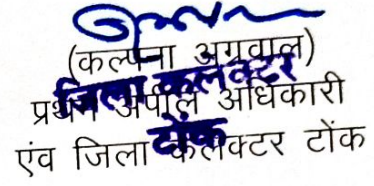 (कल्पना अग्रवाल)
जिला कलक्टर
प्रथम अपील अधिकारी
टोंक
एंव जिला कलक्टर टोंक